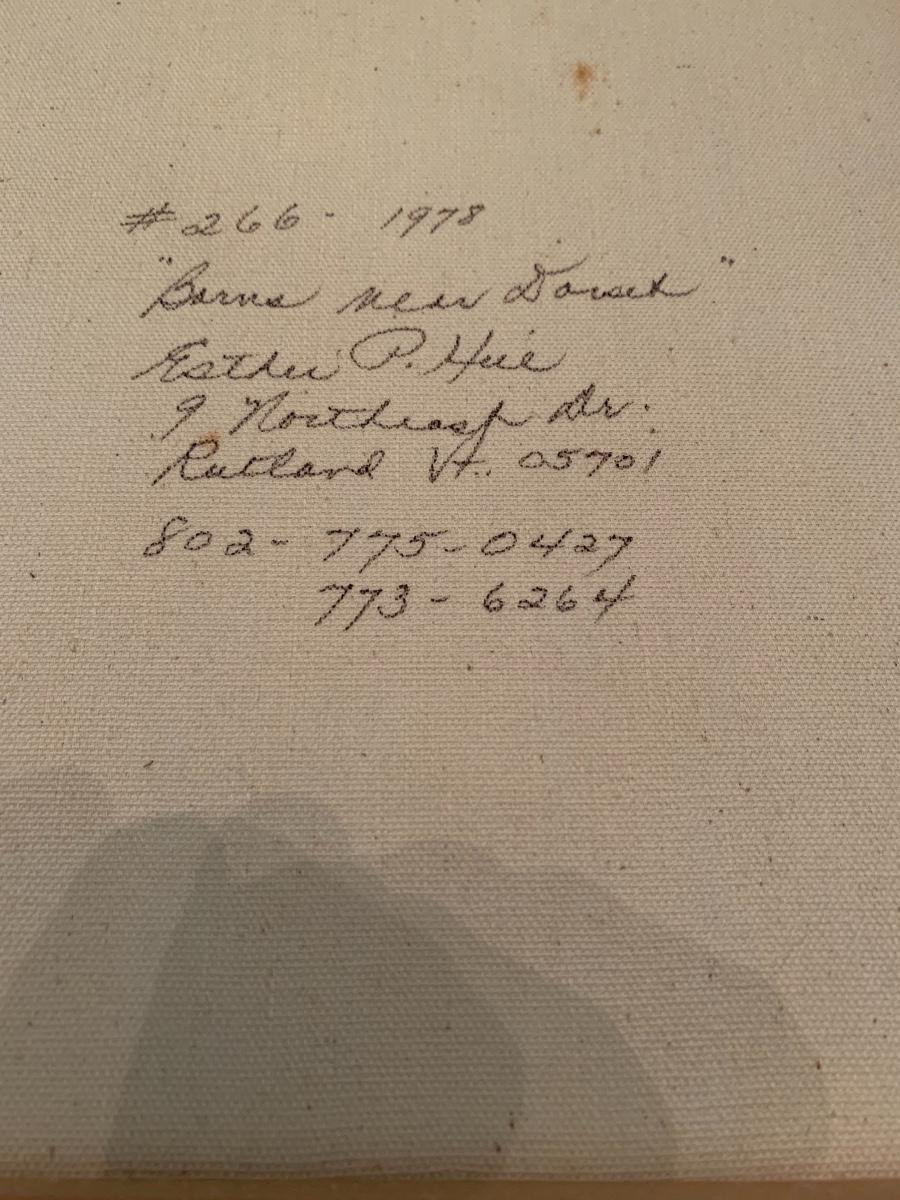 #266 - 1978
"Barns near Dorset"
Esther P.
9 Northeast Dr.
Rutland Vt. 05701
802 - 775 - 0427
773 - 6264